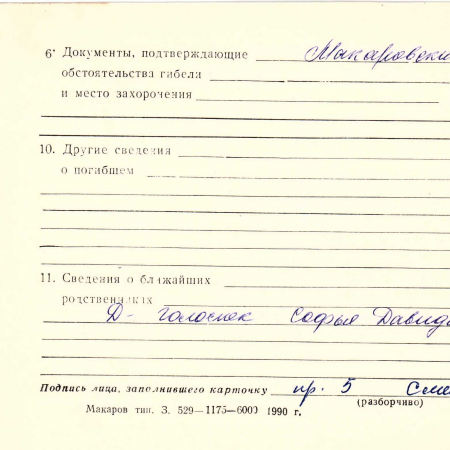 6· Документы, подтверждающие Макаровски
обстоятельства гибели
и место захорочения
10. Другие сведения
о погибшем
11. Сведения о ближайших
родственниках
Д- Голоснок Софья Давидо
Подпись лица, заполнившего карточку пр. 5 Сме
(разборчиво)
Макаров тип. З. 529—1175—6000 1990 г.